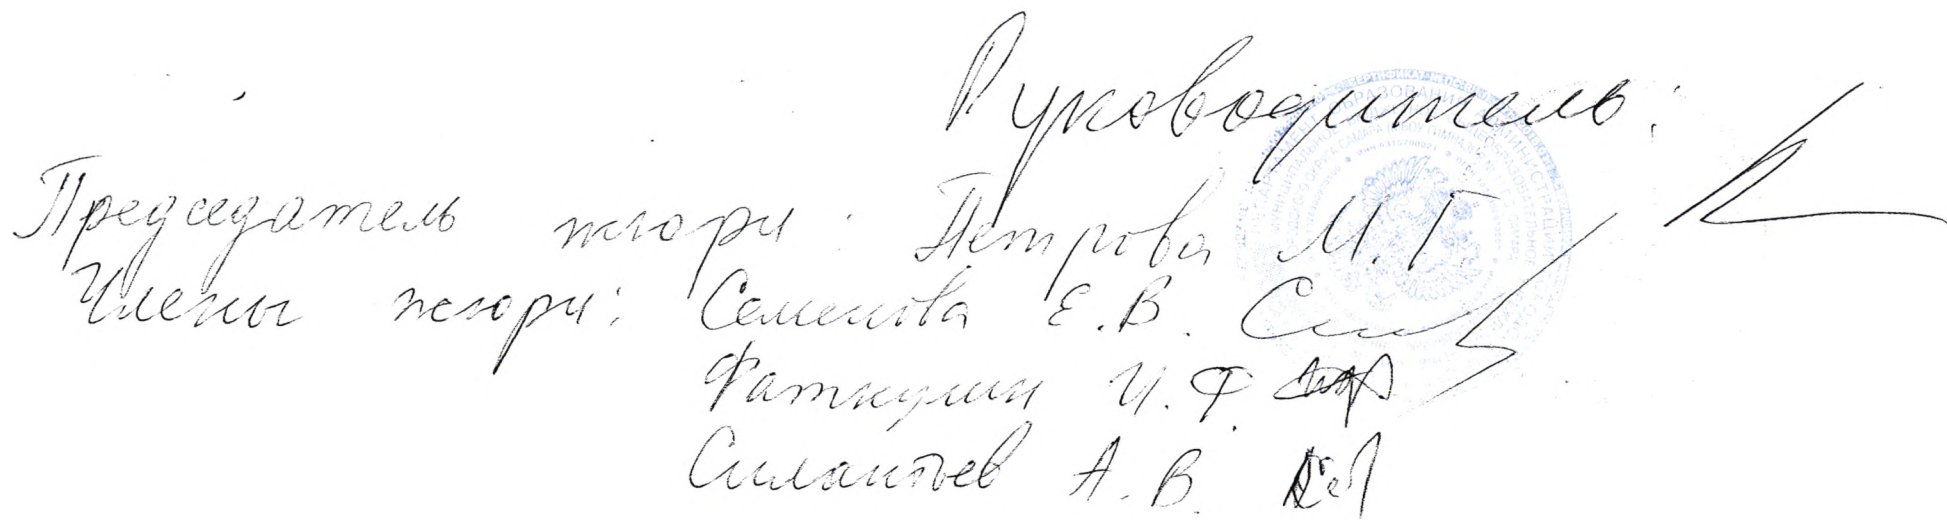 Руководитель:
Председатель жюри: Петрова М.Г.
Члены жюри: Семенова Е.В.
Фаткулин И.Ф.
Силантьев А.В.